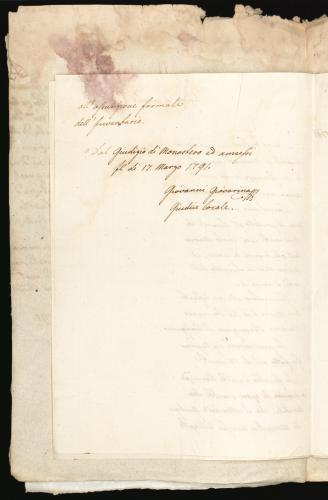 all' assunzione formale
dell' Inventario.
Dal Giudizio di Monastero ed annessi
li di 17. Marzo 1791.
Giovanni
Giudice locale.